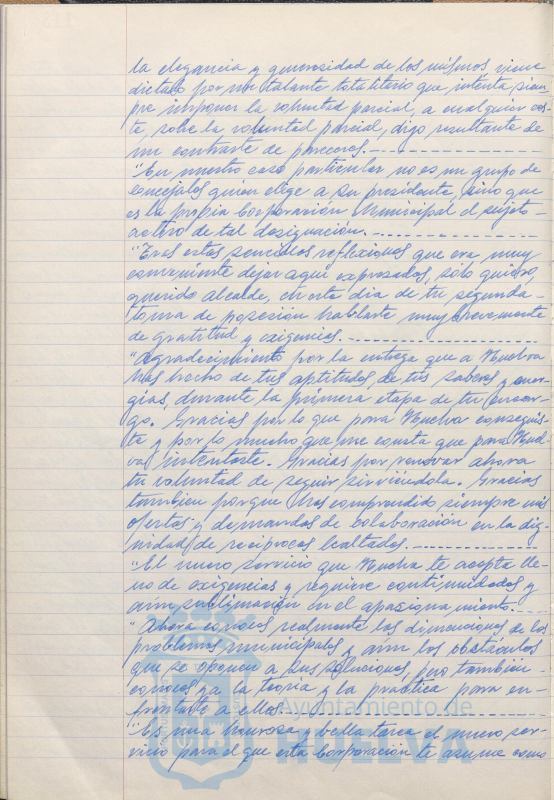 la elegancia y generosidad de los mismos viene
dictado por un talante totalitario que intenta siem-
pre imponer la voluntad parcial, a cualquier cos-
te, sobre la voluntad parcial, digo resultante de
un contraste de pareceres.
"En nuestro caso particular no es un grupo de
concejales quien elige a su presidente, sino que
es la propia Corporación Municipal el sujeto
activo de tal designación.
"Tras estas sencillas reflexiones que era muy
conveniente dejar aquí expresadas, sólo quiero,
querido Alcalde, en este día de tu segunda
toma de posesión hablarte muy brevemente
de gratitud y exigencias.
"Agradecimiento por la entrega que a Huelva
has hecho de tus aptitudes, de tus saberes y ener-
gías, durante la primera etapa de tu encar-
go. Gracias por lo que para Huelva conseguis-
te y por lo mucho que me consta que para Huel-
va intentaste. Gracias por renovar ahora
tu voluntad de seguir sirviéndola. Gracias
tambien porque has comprendido siempre mis
ofertas y demandas de colaboración en la dig-
nidad de reciprocas lealtades.
"El nuevo servicio que Huelva te acepta lle-
no de exigencias y requiere continuidades y
aún sublimación en el apasionamiento.
"Ahora conoces realmente las dimensiones de los
problemas municipales y aún los obstáculos
que se oponen a sus soluciones, pero también
conoces ya la teoría y la práctica para en-
frentarte a ellos.
"Es una hermosa y bella tarea el nuevo ser-
vicio para el que esta Corporación te asume como
Ayuntamiento de
HUELVA